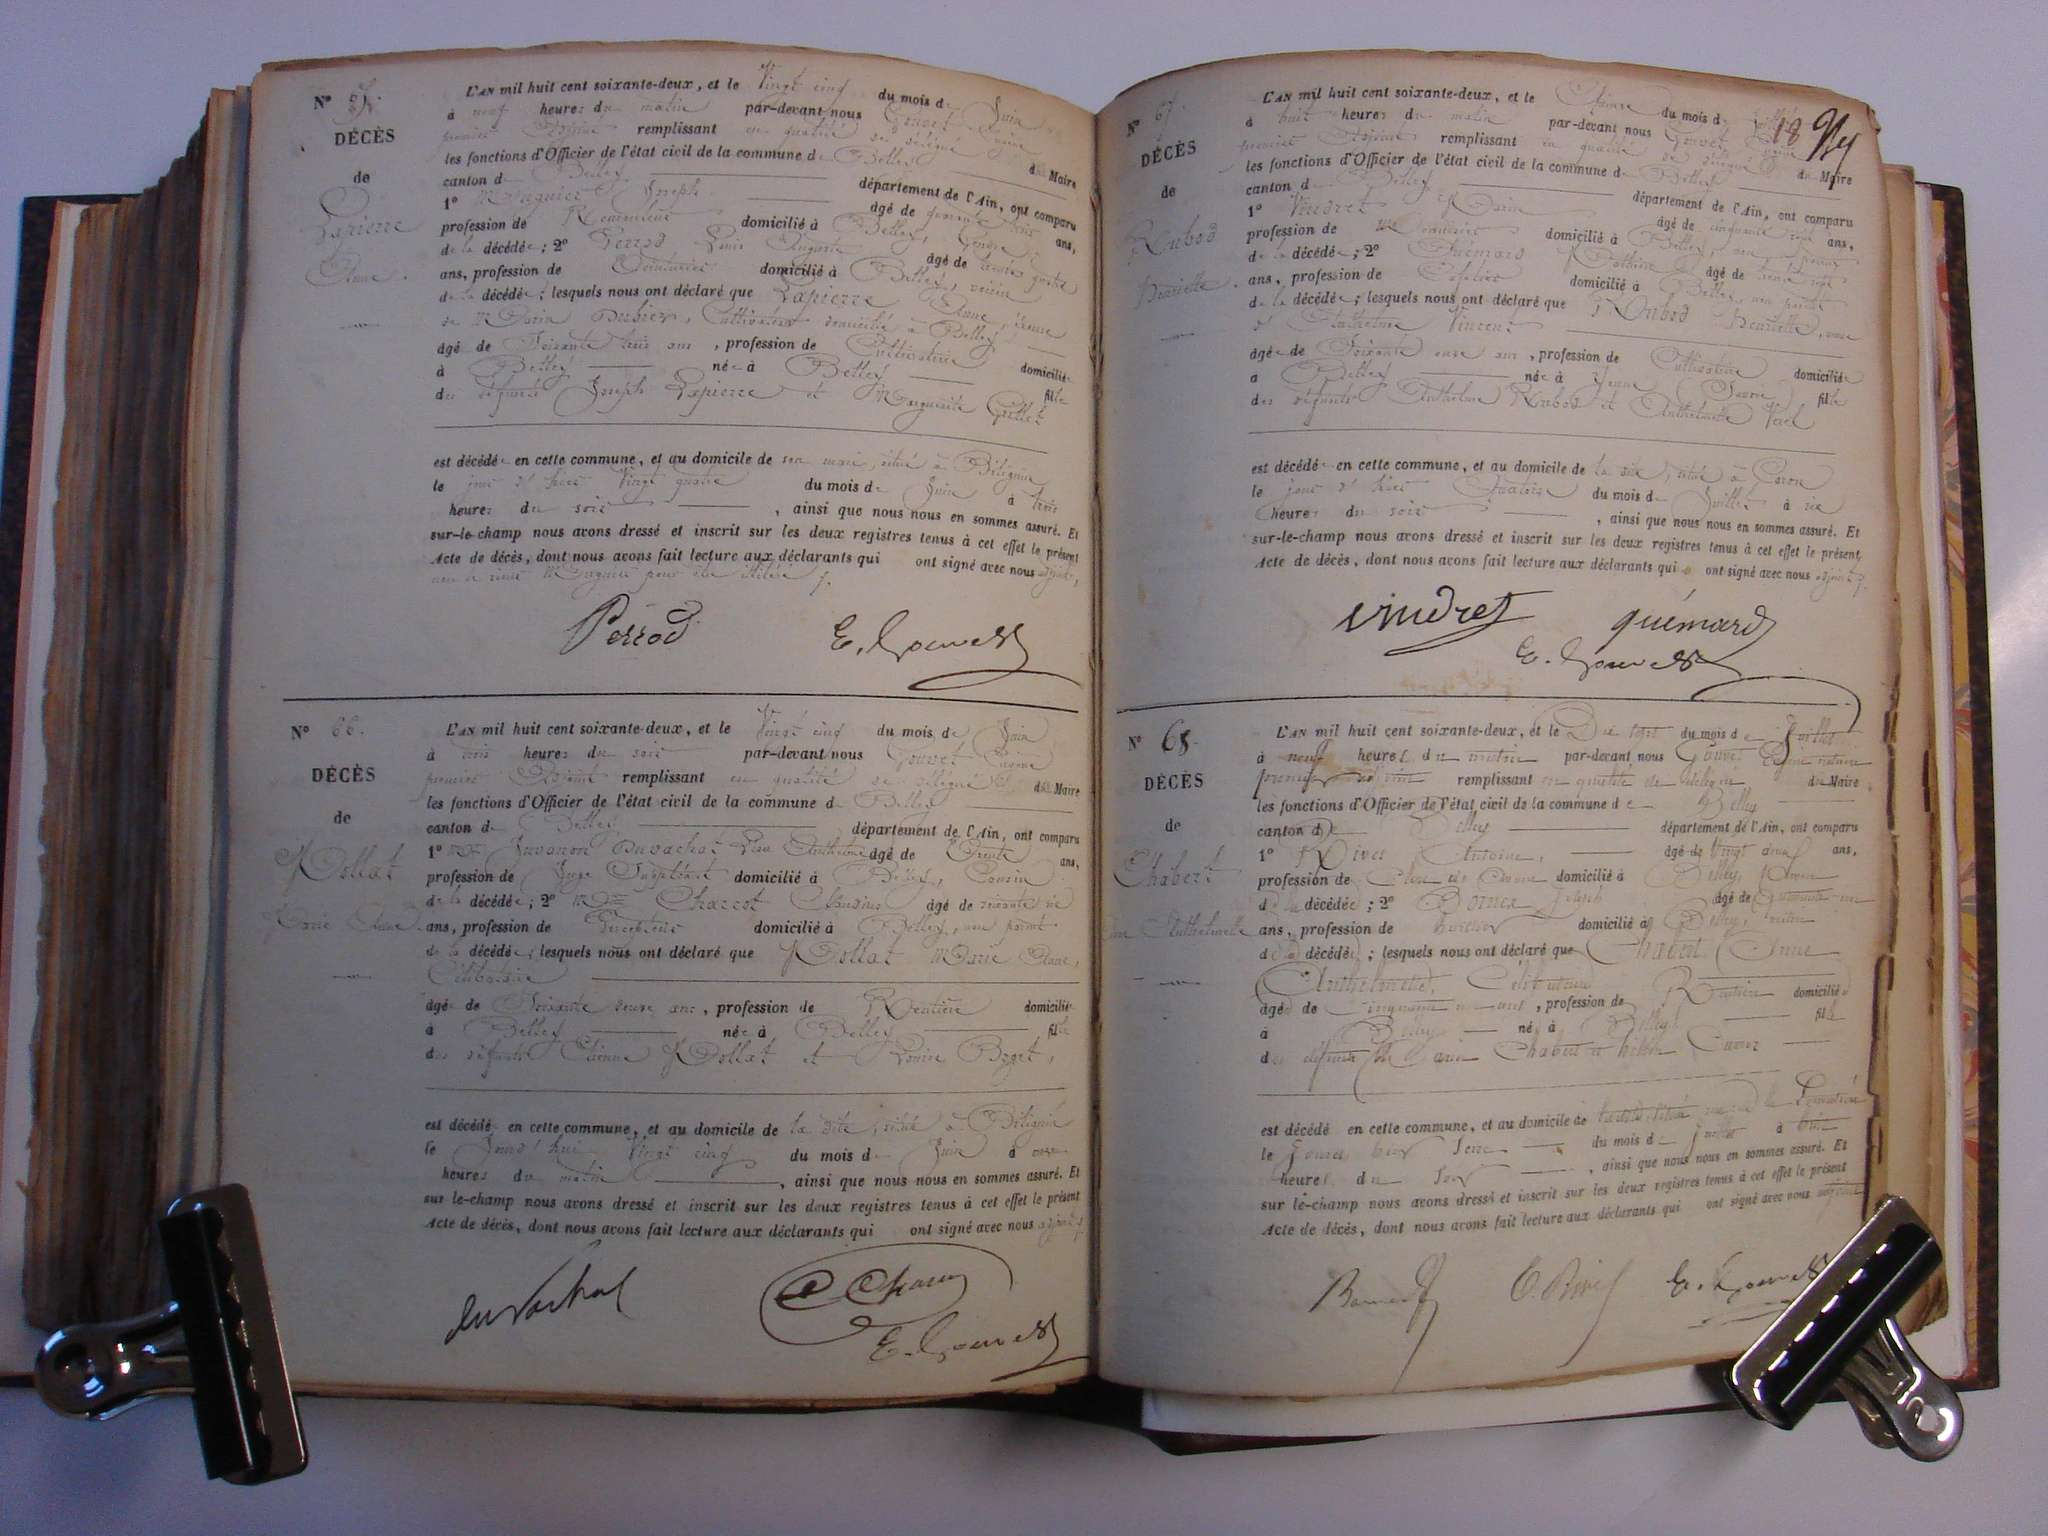 N°
DÉCÈS
de
Lapierre
Anne.
L'AN mil huit cent soixante-deux, et le Vingt cinq du mois de Juin
à neuf heures du matin par-devant nous Gouvet Eugène
premier Adjoint remplissant en qualité de délégué du Maire
les fonctions d'Officier de l'état civil de la commune de Belley
canton de Belley département de l'Ain, ont comparu
1° Muguier Joseph âgé de trois ans,
profession de domicilié à Belley, Gendre
de la décédée; 2° Perrod Louis Auguste âgé de quatre
ans, profession de domicilié à Belley, voisin
de la décédée; lesquels nous ont déclaré que Lapierre Anne,
de Marin Cultivateur domicilié à Belley
âgée de Soixante trois ans, profession de Cultivatrice domiciliée
à Belley née à Belley fille
des défunts Joseph Lapierre et Marguerite
est décédée en cette commune, et au domicile de son mari, situé à Billignin
le jour d'hier Vingt quatre du mois de Juin à trois
heures du soir, ainsi que nous nous en sommes assuré. Et
sur-le-champ nous avons dressé et inscrit sur les deux registres tenus à cet effet le présent
Acte de décès, dont nous avons fait lecture aux déclarants qui ont signé avec nous adjoint,
non le sieur pour être illitéré
Perrod E. Gouvet
N° 66.
DÉCÈS
de
Rollat
Marie Anne.
L'AN mil huit cent soixante-deux, et le Vingt cinq du mois de Juin
à trois heures du soir par-devant nous Gouvet Eugène
premier Adjoint remplissant en qualité de délégué du Maire
les fonctions d'Officier de l'état civil de la commune de Belley
canton de Belley département de l'Ain, ont comparu
1° Juvanon Duvachat Anthelme âgé de Trente ans,
profession de Juge Suppléant domicilié à Belley, Cousin
de la décédée; 2° Charcot Claudius âgé de soixante six
ans, profession de domicilié à Belley, non parent
de la décédée; lesquels nous ont déclaré que Rollat Marie Anne,
Célibataire
âgée de Soixante ans, profession de Rentière domiciliée
à Belley née à Belley fille
des défunts Etienne Rollat et Louise Boget,
est décédée en cette commune, et au domicile de la dite, situé à Billignin
le Jourd'hui Vingt cinq du mois de Juin à onze
heures du matin, ainsi que nous nous en sommes assuré. Et
sur le-champ nous avons dressé et inscrit sur les deux registres tenus à cet effet le présent
Acte de décès, dont nous avons fait lecture aux déclarants qui ont signé avec nous adjoint
duvachat
E. Gouvet
18
N° 67.
DÉCÈS
de
Rubod
Henriette.
L'AN mil huit cent soixante-deux, et le Quinze du mois de Juillet
à huit heures du matin par-devant nous Gouvet Eugène
premier Adjoint remplissant en qualité de délégué du Maire
les fonctions d'Officier de l'état civil de la commune de Belley
canton de Belley département de l'Ain, ont comparu
1° Vindret Marin âgé de cinquante ans,
profession de domicilié à Belley, non parent
de la décédée; 2° Guémard âgé de trente
ans, profession de domicilié à Belley, non parent
de la décédée; lesquels nous ont déclaré que Rubod Henriette, veuve
d'Anthelme Vincent
âgée de Soixante onze ans, profession de Cultivatrice domiciliée
à Belley née à Yenne (Savoie) fille
des défunts Anthelme Rubod et Anthelmette
est décédée en cette commune, et au domicile de la dite, situé à Coron
le jour d'hier Quatorze du mois de Juillet à six
heures du soir, ainsi que nous nous en sommes assuré. Et
sur-le-champ nous avons dressé et inscrit sur les deux registres tenus à cet effet le présent
Acte de décès, dont nous avons fait lecture aux déclarants qui ont signé avec nous adjoint
vindret guémard
E. Gouvet
N° 68.
DÉCÈS
de
Chabert
Anne Anthelmette
L'AN mil huit cent soixante-deux, et le Dix sept du mois de Juillet
à neuf heures du matin par-devant nous Gouvet Eugène notaire
premier adjoint remplissant en qualité de délégué du Maire
les fonctions d'Officier de l'état civil de la commune de Belley
canton de Belley département de l'Ain, ont comparu
1° Rives Antoine, âgé de Vingt deux ans,
profession de domicilié à Belley,
de la décédée; 2° Joseph âgé de
ans, profession de domicilié à Belley, voisin
de la décédée; lesquels nous ont déclaré que Chabert Anne
Anthelmette, Célibataire
âgée de ans, profession de Rentière domiciliée
à Belley née à Belley fille
des défunts Chabert et
est décédé en cette commune, et au domicile de
le Jour d'hier Seize du mois de Juillet à huit
heures du soir, ainsi que nous nous en sommes assuré. Et
sur le-champ nous avons dressé et inscrit sur les deux registres tenus à cet effet le présent
Acte de décès, dont nous avons fait lecture aux déclarants qui ont signé avec nous adjoint
E. Gouvet